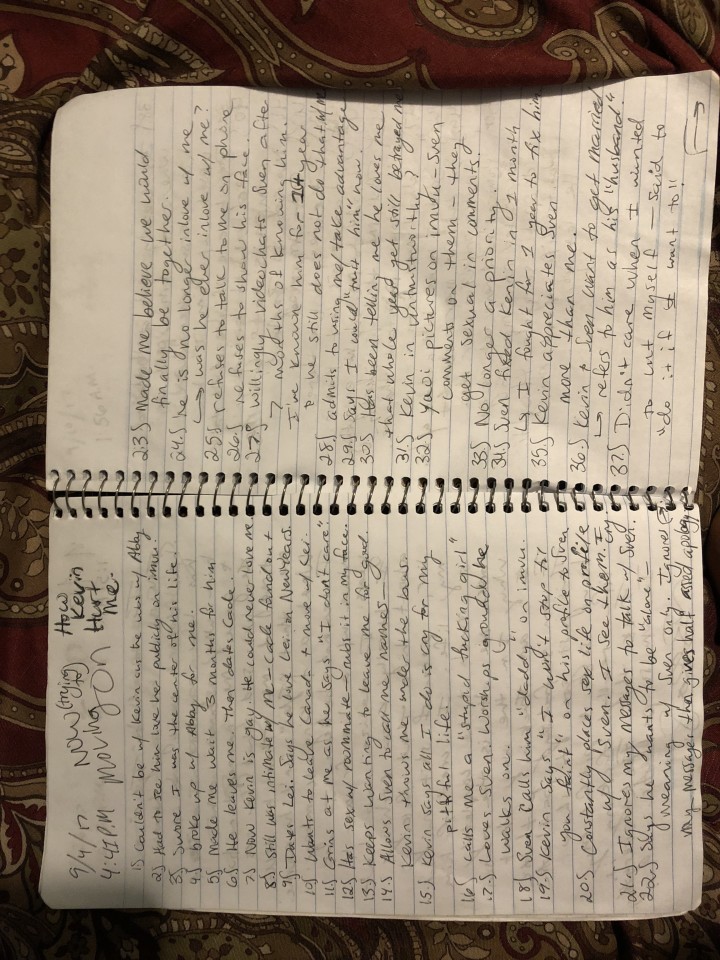 9/4/17
4:41P.M
NOW (trying to) moving on
How Kevin Hurt me.
1) Couldn't be w/ Kevin cus he was w/ Abby
2) Had to see him love her publicly on imvu.
3) Swore I was the center of his life.
4) broke up w/ Abby for me.
5) Made me wait 3 months for him
6) He leaves me. Then dates Cade.
7) Now Kevin is gay. He could never love me
8) Still was intimate w/ me - Cade found out
9) Dates Lei. Says he love Lei on NewYears.
10) Wants to leave Canada + move w/ Lei.
11) Grins at me as he says "I don't care".
12) Has sex w/ roommate - rubs it in my face.
13) Keeps wanting to leave me for good.
14) Allows Sven to call me names -
Kevin throws me under the bus.
15) Kevin says all I do is cry for my
pitiful life.
16) calls me a "stupid fucking girl"
17) Loves Sven. Worships ground he
walks on.
18) Sven calls him "daddy" on imvu.
19) Kevin says "I won't stop til
you faint" on his profile to Sven
20) Constantly places sex life on profile
w/ Sven. I see them. I cry
21) Ignores my messages to talk w/ Sven.
22) Says he wants to be "alone" -
meaning w/ Sven only. Ignores
my messages then gives half assed apology
23) Made me believe we would
finally be together.
24) he is no longer inlove w/ me
↳ was he ever inlove w/ me?
25) refuses to talk to me on phone
26) refuses to show his face.
27) Willingly videochats Sven after
7 months of knowing him.
I've known him for 1+ year
& he still does not do that w/ me
28) admits to using me/take advantage
29) Says I could "trust him" now.
30) Has been telling me he loves me
that whole year yet still betrayed me
31) Kevin is untrustworthy?
32) Yaoi pictures on imvu - Sven
comments on them - they
get sexual in comments!
33) No longer a priority.
34) Sven fixed Kevin in 1 month
↳ I fought for 1 year to fix him
35) Kevin appreciates Sven
more than me.
36) Kevin & Sven want to get married
↳ refers to him as his "husband"
37) Didn't care when I wanted
to cut myself - said to
"do it if I want to!!